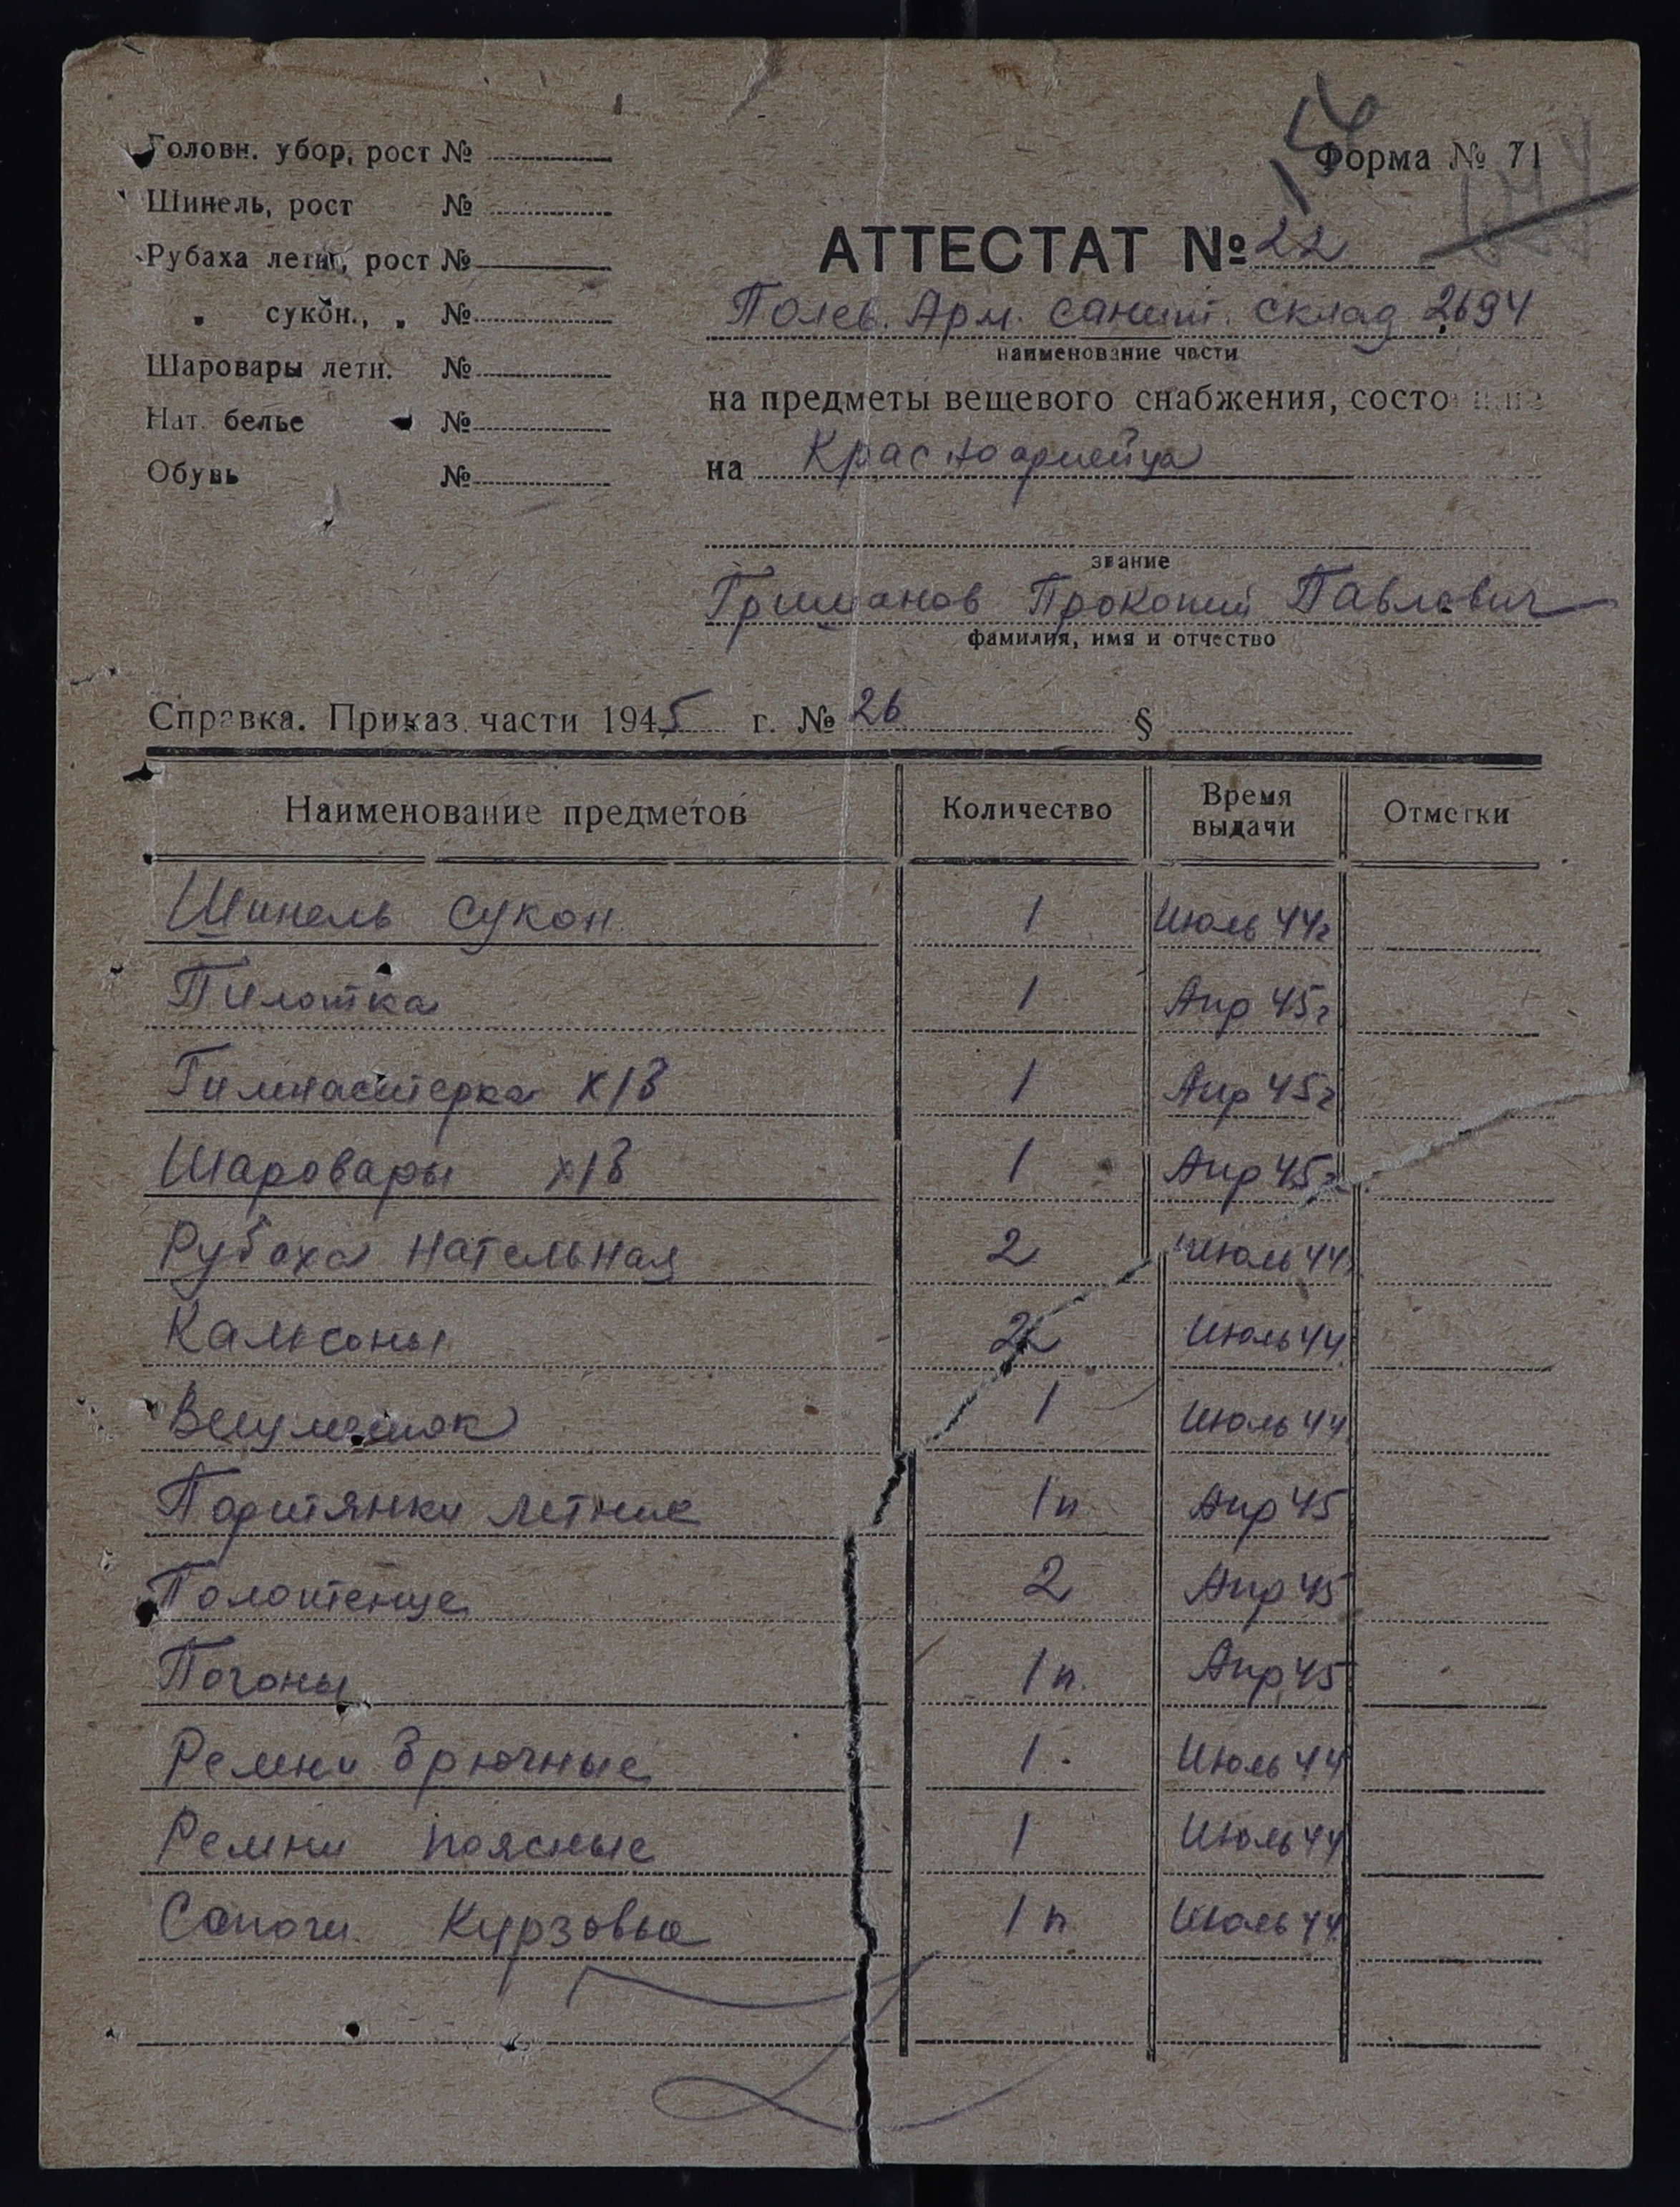 Головн. убор, рост №
Шинель, рост №
Рубаха летн., рост №
" сукон., " №
Шаровары летн. №
Нат. белье №
Обувь №
Форма № 71
АТТЕСТАТ № 22
Полев. Арм. санит. склад 2694
наименование части
на предметы вещевого снабжения, состо
на Красноармейца
звание
Гришанов Прокопий Павлович
фамилия, имя и отчество
Справка. Приказ части 1945 г. № 26 §
Наименование предметов Количество Время выдачи Отметки
Шинель сукон 1 Июль 44г
Пилотка 1 Апр 45г
Гимнастерка х/б 1 Апр 45г
Шаровары х/б 1 Апр 45г
Рубаха нательная 2 Июль 44г
Кальсоны 2 Июль 44
Вещмешок 1 Июль 44
Портянки летние 1п Апр 45
Полотенце 2 Апр 45
Погоны 1п. Апр 45
Ремни брючные 1. Июль 44
Ремни поясные 1 Июль 44
Сапоги Курзовые 1п Июль 44